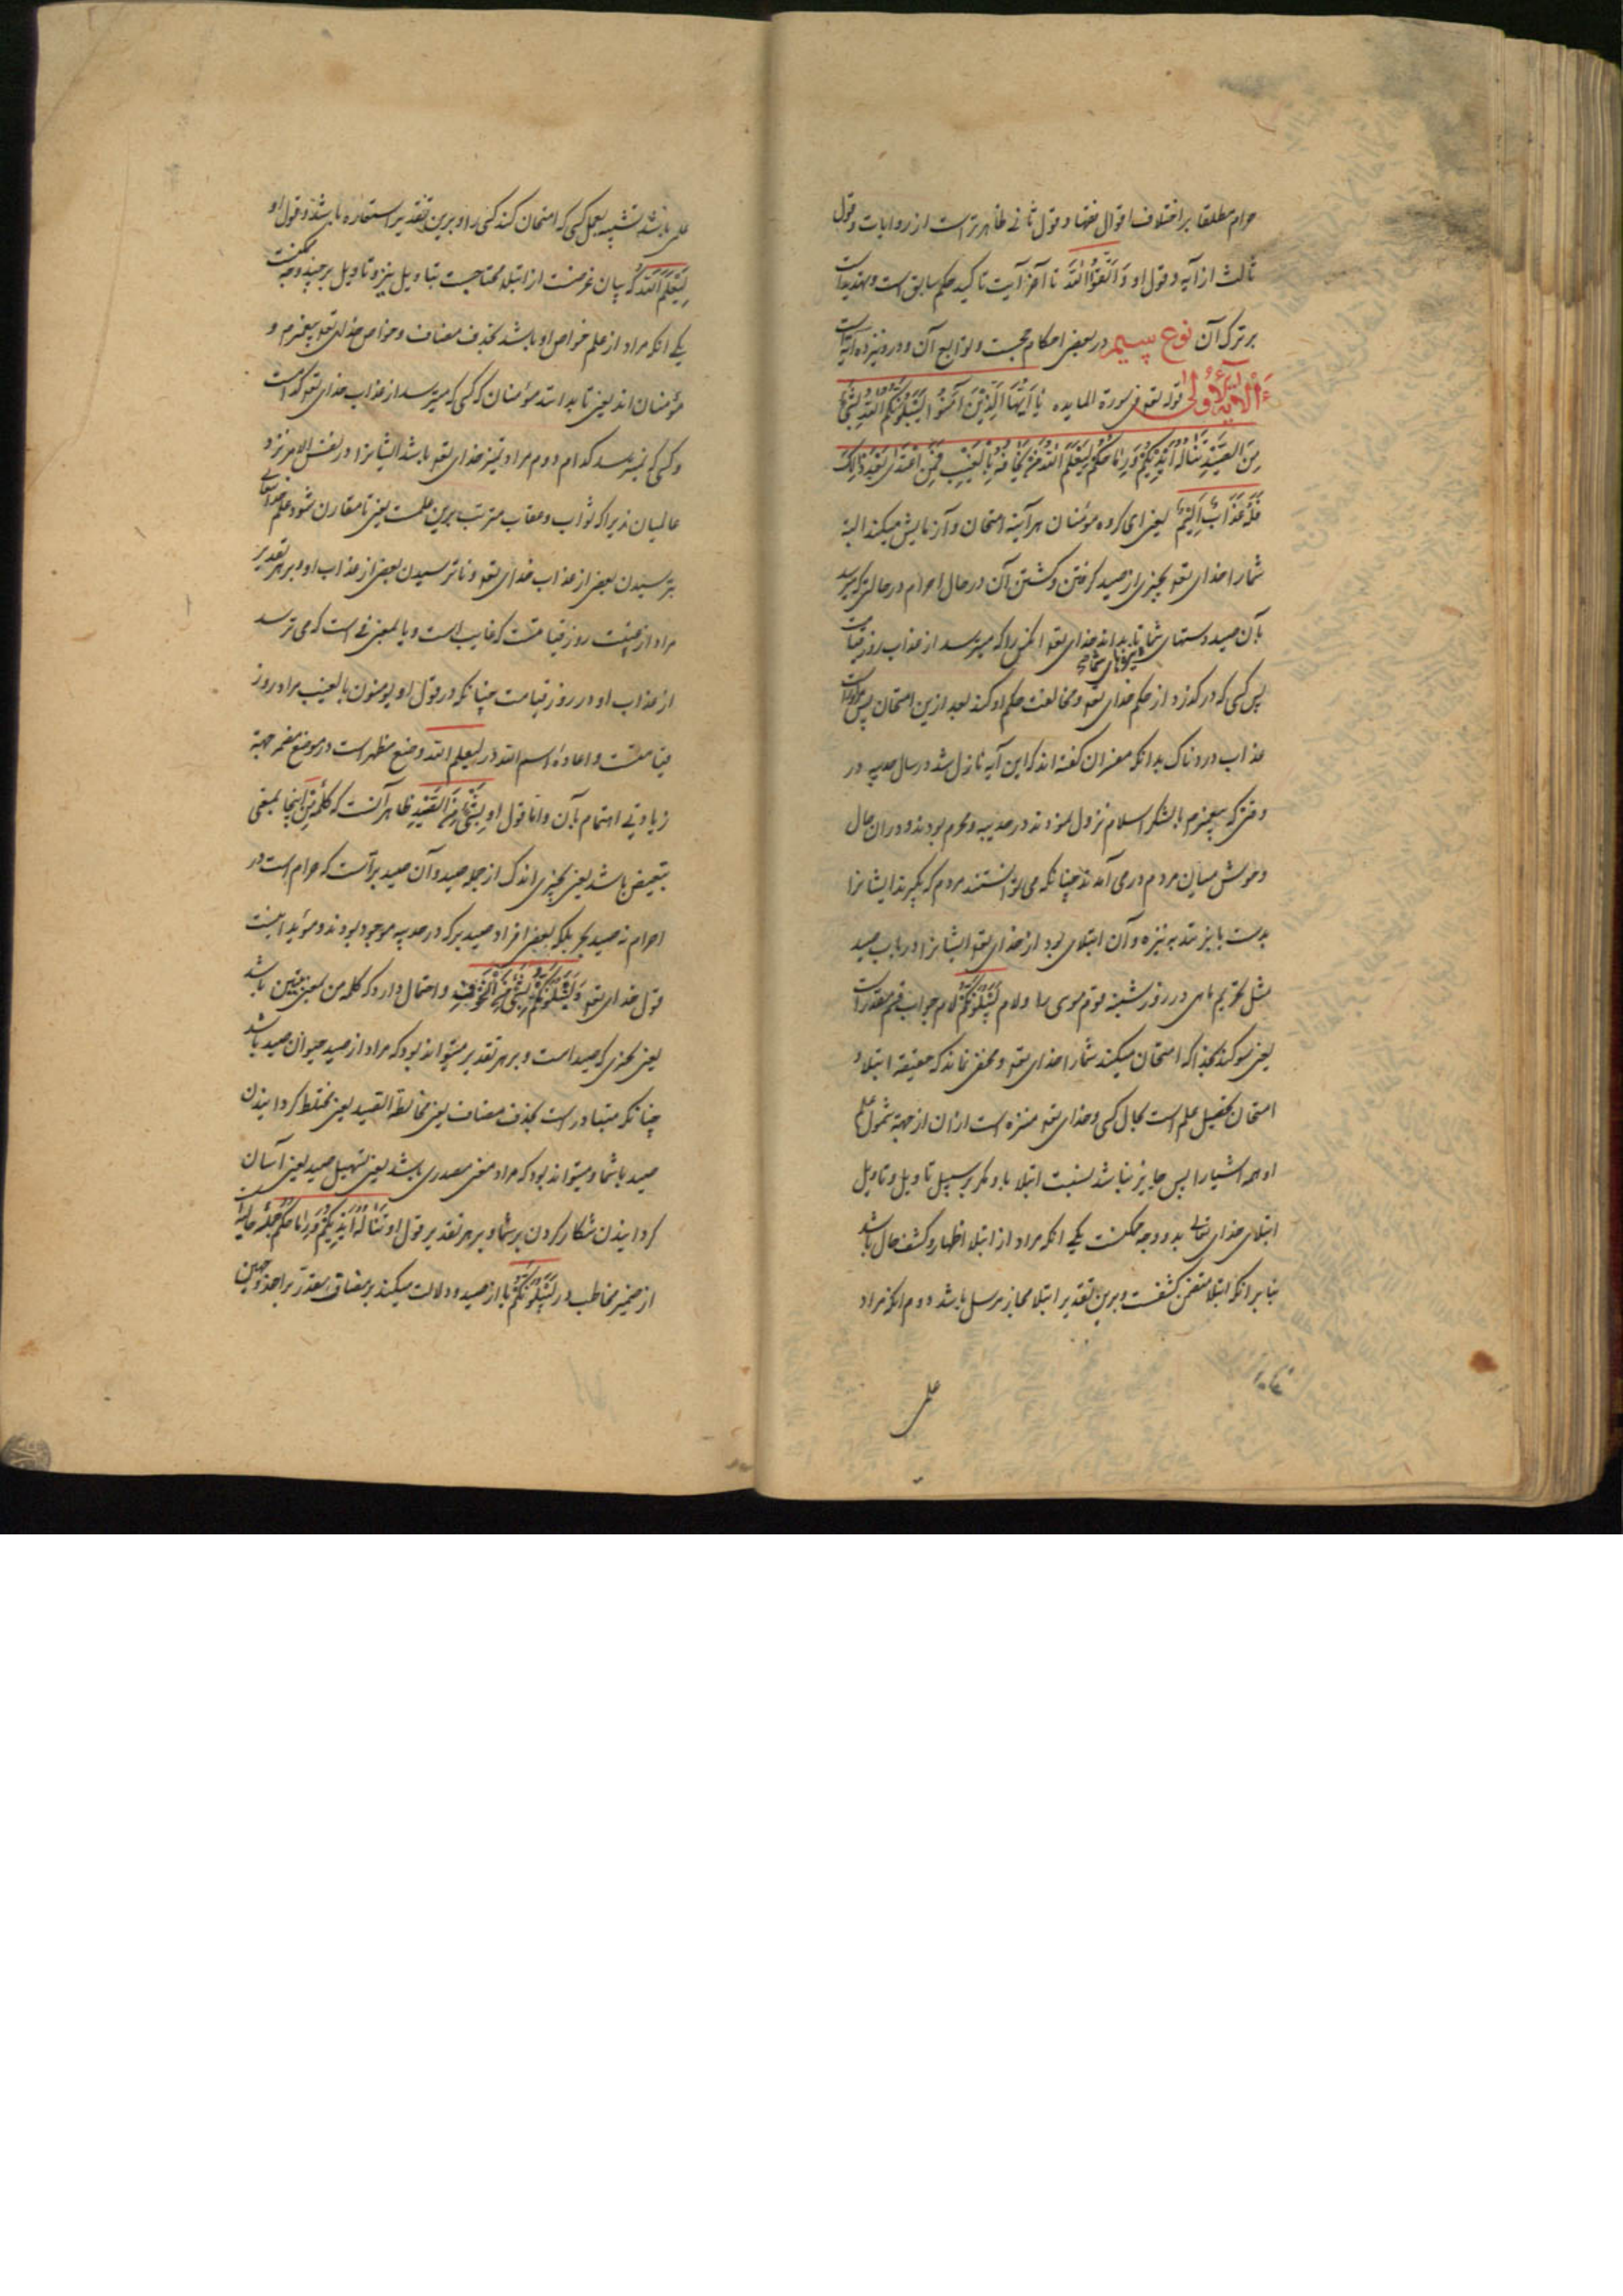 حرام مطلقا بر اختلاف اقوال فقها و قول ثانی ظاهرتر است از روایات و قول
ثالث از آیه و قول او وَاتَّقُوا اللّٰهَ تا آخر آیت تاکید حکم سابق است و تهدید است
بر ترک آن نوع سیم در بعضی احکام حجست و توابع آن و درو نیز ده آیه است
الآیة الاولی قوله تعه فی سورة المایده یَا اَیُّهَا الَّذِیْنَ آمَنُوا لَیَبْلُوَنَّکُمُ اللّٰهُ بِشَیْءٍ
مِنَ الصَّیْدِ تَنَالُهُ اَیْدِیْکُمْ وَرِمَاحُکُمْ لِیَعْلَمَ اللّٰهُ مَنْ یَخَافُهُ بِالْغَیْبِ فَمَنِ اعْتَدٰی بَعْدَ ذٰلِکَ
فَلَهُ عَذَابٌ اَلِیْمٌ یعنی ای گروه مؤمنان هرآینه امتحان و آزمایش میکند البته
شما را خدای تعه بچیزی از صید گرفتن و کشتن آن در حال احرام در حالتی که برسد
بآن صید دستهای شما و نیزهای شما تا بداند خدای تعه انکس را که میترسد از عذاب روز قیامت
پس کسی که درگذرد از حکم خدای تعه و مخالفت حکم او کند بعد ازین امتحان پس مر او راست
عذاب دردناک بدانکه مفسران گفته اند که این آیه نازل شد در سال حدیبیه در
وقتی که پیغمبرم با لشکر اسلام نزول نمودند در حدیبیه و محرم بودند و در ان حال
وحوش میان مردم در می آمدند چنانکه می توانستند مردم که بگیرند ایشانرا
بدست یا بزنند به نیزه و آن ابتلای بود از خدای تعه ایشانرا در باب صید
مثل تحریم ماهی در روز شنبه قوم موسی را و لام لَیَبْلُوَنَّکُمْ لام جواب قسم مقدر است
یعنی سوکند بخدا که امتحان میکند شما را خدای تعه و مخفی نماند که حقیقة ابتلا و
امتحان تحصیل علم است بحال کسی و خدای تعه منزه است از ان از جهة شمول علم
او همه اشیا را پس جایز نباشد نسبت ابتلا باو مکر بر سبیل تاویل و تاویل
ابتلای خدای تعالی بدو وجه ممکنست یکی انکه مراد از ابتلا اظهار و کشف حال باشد
بنا بر انکه ابتلا متضمن کشفست و برین تقدیر ابتلا مجاز مرسل باشد دوم انکه مراد
علی
علی باشد تشبیه بعمل کسی که امتحان کند کسی را و برین تقدیر استعاره باشد و قول او
لِیَعْلَمَ اللّٰهُ که بیان غرضست از ابتلا محتاجست بتاویل نیز و تاویل بر چند وجه ممکنست
یکی انکه مراد از علم خواص او باشد بحذف مضاف و خواص خدای تعه پیغمبرم و
مؤمنان اند یعنی تا بدانند مؤمنان که کسی که میترسد از عذاب خدای تعه کدامست
و کسی که نمیترسد کدام دوم مراد تمیز خدای تعه باشد ایشانرا در نفس الامر نزد
عالمیان زیرا که ثواب و عقاب مترتب برین علمست یعنی تا مقارن شود علم خدایتعالی
بترسیدن بعضی از عذاب خدای تعه و ناترسیدن بعضی از عذاب او و بر هر تقدیر
مراد از غیبت روز قیامتست که غایب است و با بمعنی فی است که می ترسد
از عذاب او در روز قیامت چنانکه در قول او یومنون بالغیب مراد روز
قیامتست و اعاده اسم الله در لیعلم الله وضع مظهر است در موضع مضمر جهة
زیادتی اهتمام بآن و اما قول او بِشَیْءٍ مِنَ الصَّیْدِ ظاهر آنست که کلمه مِن اینجا بمعنی
تبعیض باشد یعنی بچیزی اندک از جمله صید و آن صید برّ است که حرام است در
احرام نه صید بحر بلکه بعضی افراد صید بر که در حدیبیه موجود بودند و مؤید اینست
قول خدای تعه وَلَنَبْلُوَنَّکُمْ بِشَیْءٍ مِنَ الْخَوْفِ و احتمال دارد که کلمه من بمعنی تبیین باشد
یعنی بچیزی که صید است و بر هر تقدیر میتواند بود که مراد از صید حیوان صید باشد
چنانکه متبادر است بحذف مضاف یعنی مخالطة الصید یعنی مختلط کردانیدن
صید با شما و میتواند بود که مراد معنی مصدری باشد یعنی تسهیل صید یعنی آسان
کردانیدن شکار کردن بر شما و بر هر تقدیر قول او تَنَالُهُ اَیْدِیْکُمْ وَرِمَاحُکُمْ جملهٔ حالیه است
از ضمیر مخاطب در لَیَبْلُوَنَّکُمْ یا از صید و دلالت میکند بر مضاف مقدر بر احد وجهین